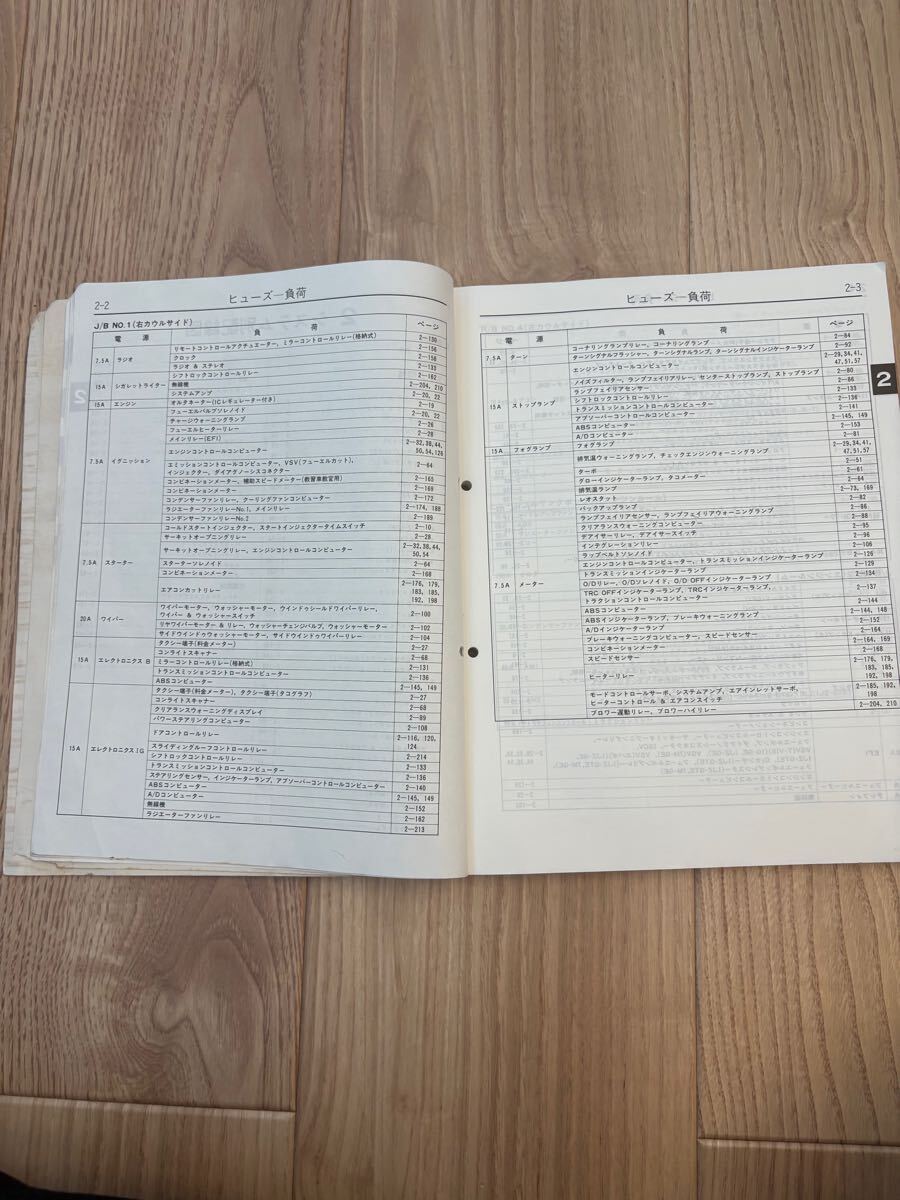 2-2
ヒューズ―負荷
J/B NO.1(右カウルサイド)
電 源 負 荷 ページ
7.5A ラジオ
リモートコントロールアクチュエーター, ミラーコントロールリレー(格納式) 2―130
クロック 2―156
ラジオ & ステレオ 2―158
シフトロックコントロールリレー 2―133
15A シガレットライター 無線機 2―162
システムアンプ 2―204, 210
15A エンジン オルタネーター(ICレギュレーター付き) 2―20, 22
7.5A イグニッション
フューエルバルブソレノイド 2―19
チャージウォーニングランプ 2―20, 22
フューエルヒーターリレー 2―26
メインリレー(EFI) 2―28
エンジンコントロールコンピューター 2―32, 38, 44, 50, 54, 126
エミッションコントロールコンピューター, VSV(フューエルカット),
インジェクター, ダイアグノーシスコネクター 2―64
コンビネーションメーター, 補助スピードメーター(教習車教官用) 2―165
コンビネーションメーター 2―169
コンデンサーファンリレー, クーリングファンコンピューター 2―172
ラジエーターファンリレーNo.1, メインリレー 2―174, 188
コンデンサーファンリレーNo.2 2―189
7.5A スターター
コールドスタートインジェクター, スタートインジェクタータイムスイッチ 2―10
サーキットオープニングリレー 2―28
サーキットオープニングリレー, エンジンコントロールコンピューター 2―32, 38, 44, 50, 54
スターターソレノイド 2―64
コンビネーションメーター 2―168
エアコンカットリレー 2―176, 179, 183, 185, 192, 198
20A ワイパー
ワイパーモーター, ウォッシャーモーター, ウインドゥシールドワイパーリレー,
ワイパー & ウォッシャースイッチ 2―100
リヤワイパーモーター & リレー, ウォッシャーチェンジバルブ, ウォッシャーモーター 2―102
サイドウインドゥウォッシャーモーター, サイドウインドゥワイパーリレー 2―104
15A エレクトロニクス B
タクシー端子(料金メーター) 2―27
コンライトスキャナー 2―68
ミラーコントロールリレー(格納式) 2―131
トランスミッションコントロールコンピューター 2―136
ABSコンピューター 2―145, 149
15A エレクトロニクス IG
タクシー端子(料金メーター), タクシー端子(タコグラフ) 2―27
コンライトスキャナー 2―68
クリアランスウォーニングディスプレイ 2―89
パワーステアリングコンピューター 2―108
ドアコントロールリレー 2―116, 120, 124
スライディングルーフコントロールリレー 2―214
シフトロックコントロールリレー 2―133
トランスミッションコントロールコンピューター 2―136
ステアリングセンサー, インジケーターランプ, アブソーバーコントロールコンピューター 2―140
ABSコンピューター 2―145, 149
A/Dコンピューター 2―152
無線機 2―162
ラジエーターファンリレー 2―213
ヒューズ―負荷
2-3
電 源 負 荷 ページ
7.5A ターン
コーナリングランプリレー, コーナリングランプ 2―84
ターンシグナルフラッシャー, ターンシグナルランプ, ターンシグナルインジケーターランプ 2―92
15A ストップランプ
エンジンコントロールコンピューター 2―29, 34, 41, 47, 51, 57
ノイズフィルター, ランプフェイリアリレー, センターストップランプ, ストップランプ 2―80
ランプフェイリアセンサー 2―86
シフトロックコントロールリレー 2―133
トランスミッションコントロールコンピューター 2―136
アブソーバーコントロールコンピューター 2―141
ABSコンピューター 2―145, 149
A/Dコンピューター 2―153
15A フォグランプ フォグランプ 2―81
7.5A メーター
排気温ウォーニングランプ, チェックエンジンウォーニングランプ 2―29, 34, 41, 47, 51, 57
ターボ 2―51
グローインジケーターランプ, タコメーター 2―61
排気温ランプ 2―64
レオスタット 2―73, 169
バックアップランプ 2―82
ランプフェイリアセンサー, ランプフェイリアウォーニングランプ 2―86
クリアランスウォーニングコンピューター 2―88
デアイサーリレー, デアイサースイッチ 2―95
インテグレーションリレー 2―96
ラップベルトソレノイド 2―106
エンジンコントロールコンピューター, トランスミッションインジケーターランプ 2―126
トランスミッションインジケーターランプ 2―129
O/Dリレー, O/Dソレノイド, O/D OFFインジケーターランプ 2―134
TRC OFFインジケーターランプ, TRCインジケーターランプ,
トラクションコントロールコンピューター 2―137
ABSコンピューター 2―144
ABSインジケーターランプ, ブレーキウォーニングランプ 2―144, 148
A/Dインジケーターランプ 2―152
ブレーキウォーニングコンピューター, スピードセンサー 2―164
コンビネーションメーター 2―164, 169
スピードセンサー 2―168
ヒーターリレー 2―176, 179, 183, 185, 192, 198
モードコントロールサーボ, システムアンプ, エアインレットサーボ,
ヒーターコントロール & エアコンスイッチ 2―185, 192, 198
ブロワー遅動リレー, ブロワーハイリレー 2―204, 210
2